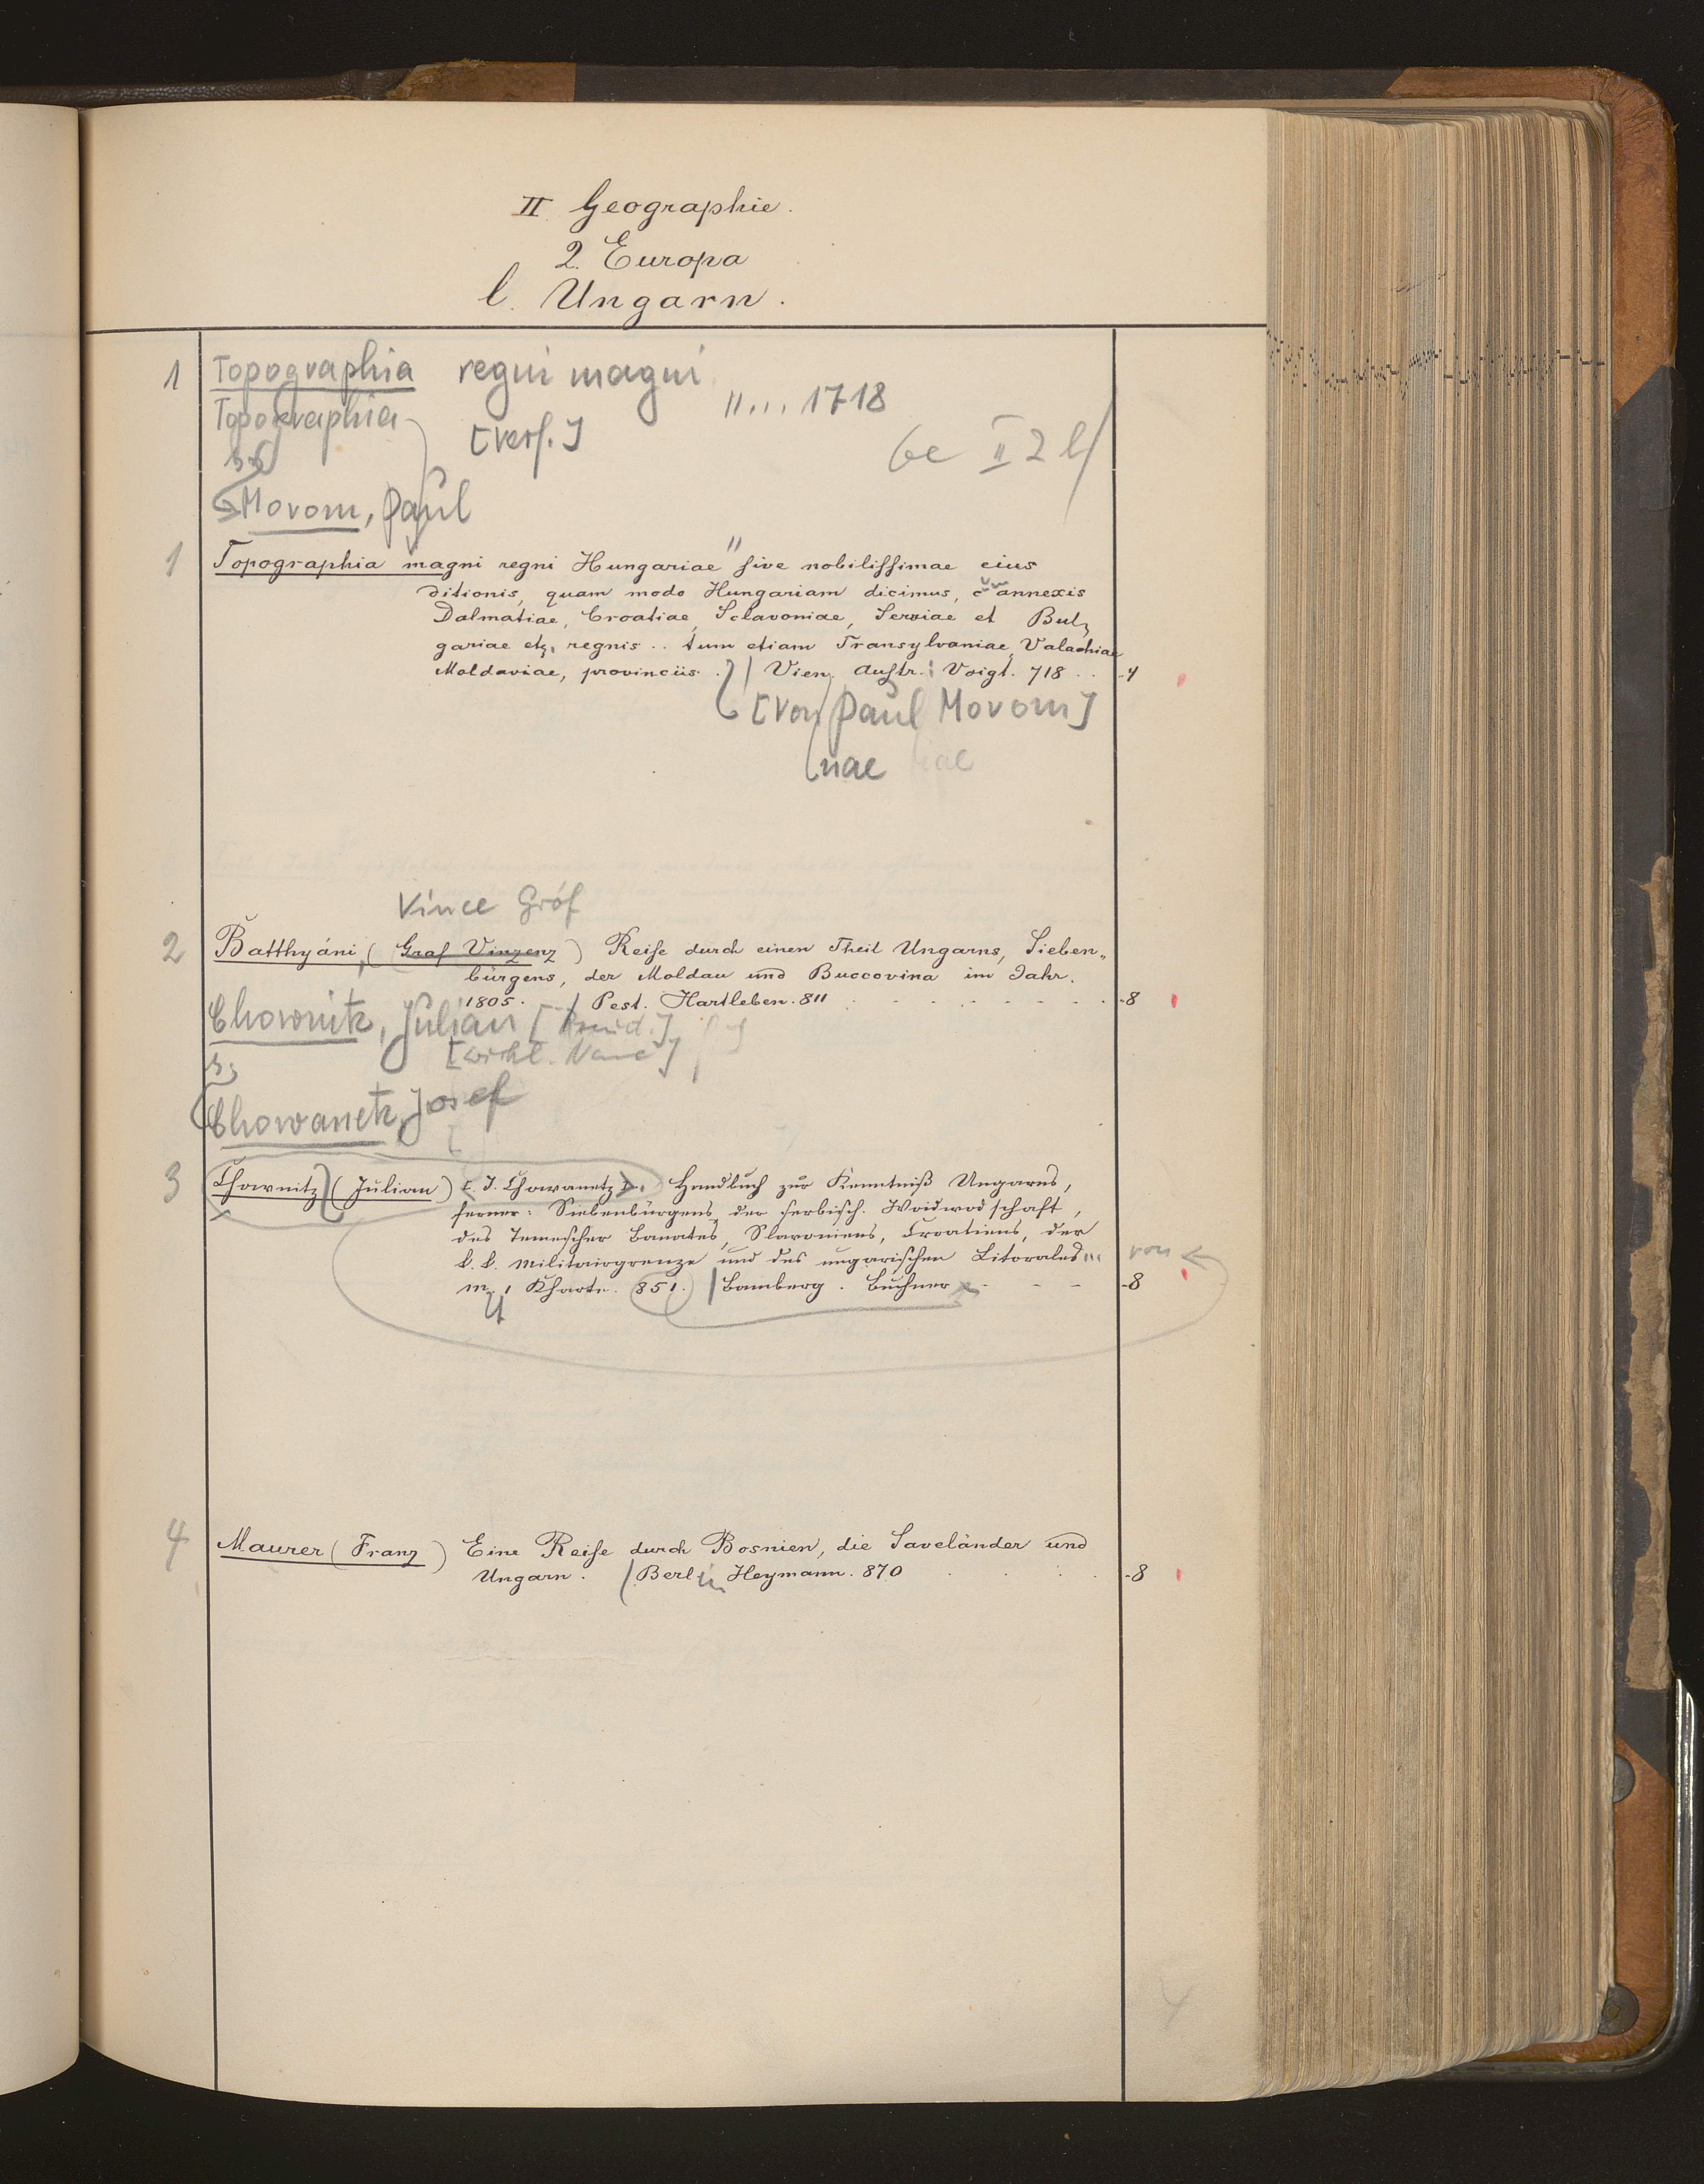 II Geographie.
2. Europa
l. Ungarn.
1 Topographia regni magni
II.... 1718
Topographia [Verf.]
s.
Ge II 2 l
Morom, Paul
1 Topographia magni regni Hungariae sive nobilissimae eius
ditionis, quam modo Hungariam dicimus, c annexis
Dalmatiae, Croatiae, Sclavoniae, Serviae et Bul-
gariae etz. regnis .. tum etiam Transylvaniae, Valachiae
Moldaviae, provinciis. Vien. Austr.: Voigt. 718 .. -4
[Von Paul Morom]
nae
Vince Gróf
2 Batthyáni, (Graf Vinzenz) Reise durch einen Theil Ungarns, Sieben-
bürgens, der Moldau und Buccovina im Jahr.
1805. Pest. Hartleben. 811 -8
Chownitz, Julian [Pseud.]
[wirkl. Name]
s.
Chowanetz, Josef
3 Chownitz (Julian) (. J. Chowanetz). Handbuch zur Kenntniß Ungarns,
ferner: Siebenbürgens, der serbisch. Woiwodschaft,
des Temescher Banates, Slavoniens, Croatiens, der
k. k. Militairgrenze und des ungarischen Litorales ... von
m. 1 Kharte. 851. Bamberg. Buchner - - - -8
4 Maurer (Franz) Eine Reise durch Bosnien, die Saveländer und
Ungarn. Berlin Heymann. 870 -8
4